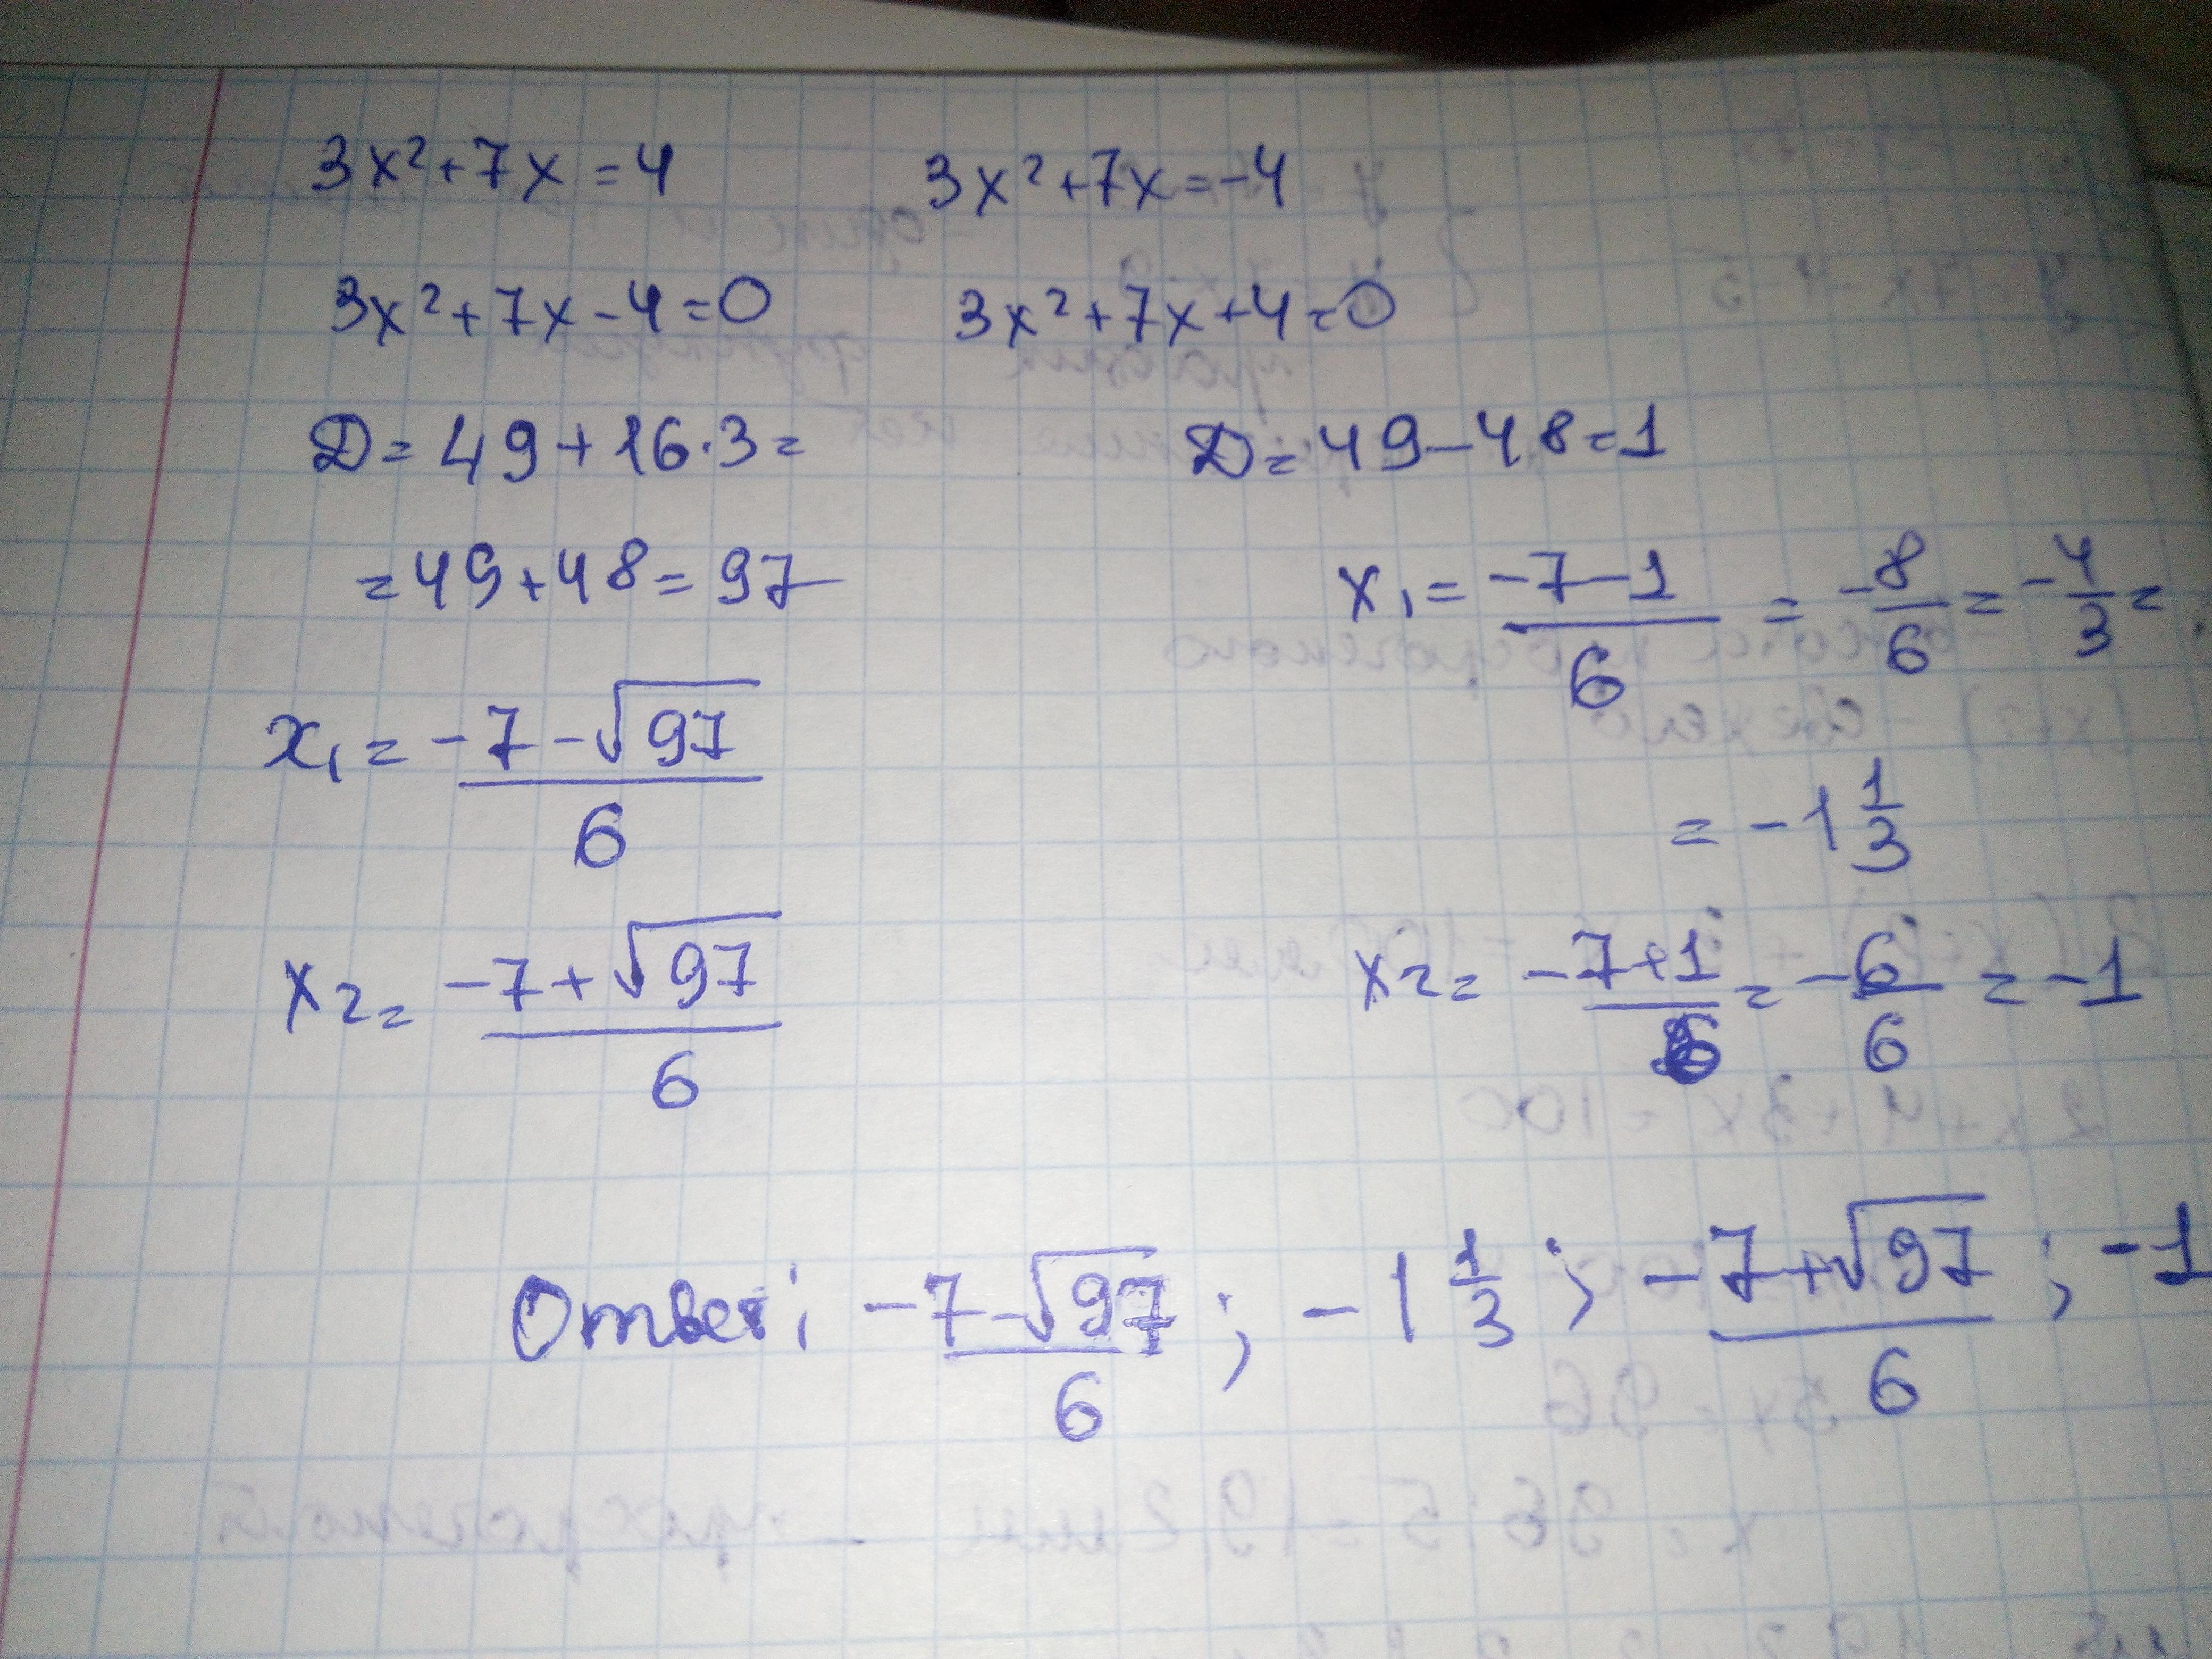 3x²+7x=4
3x²+7x-4=0
D=49+16·3=
=49+48=97
x₁=(-7-√97)/6
x₂=(-7+√97)/6
3x²+7x=-4
3x²+7x+4=0
D=49-48=1
x₁=(-7-1)/6=-8/6=-4/3=
=-1 1/3
x₂=(-7+1)/6=-6/6=-1
Ответ: (-7-√97)/6; -1 1/3; (-7+√97)/6; -1